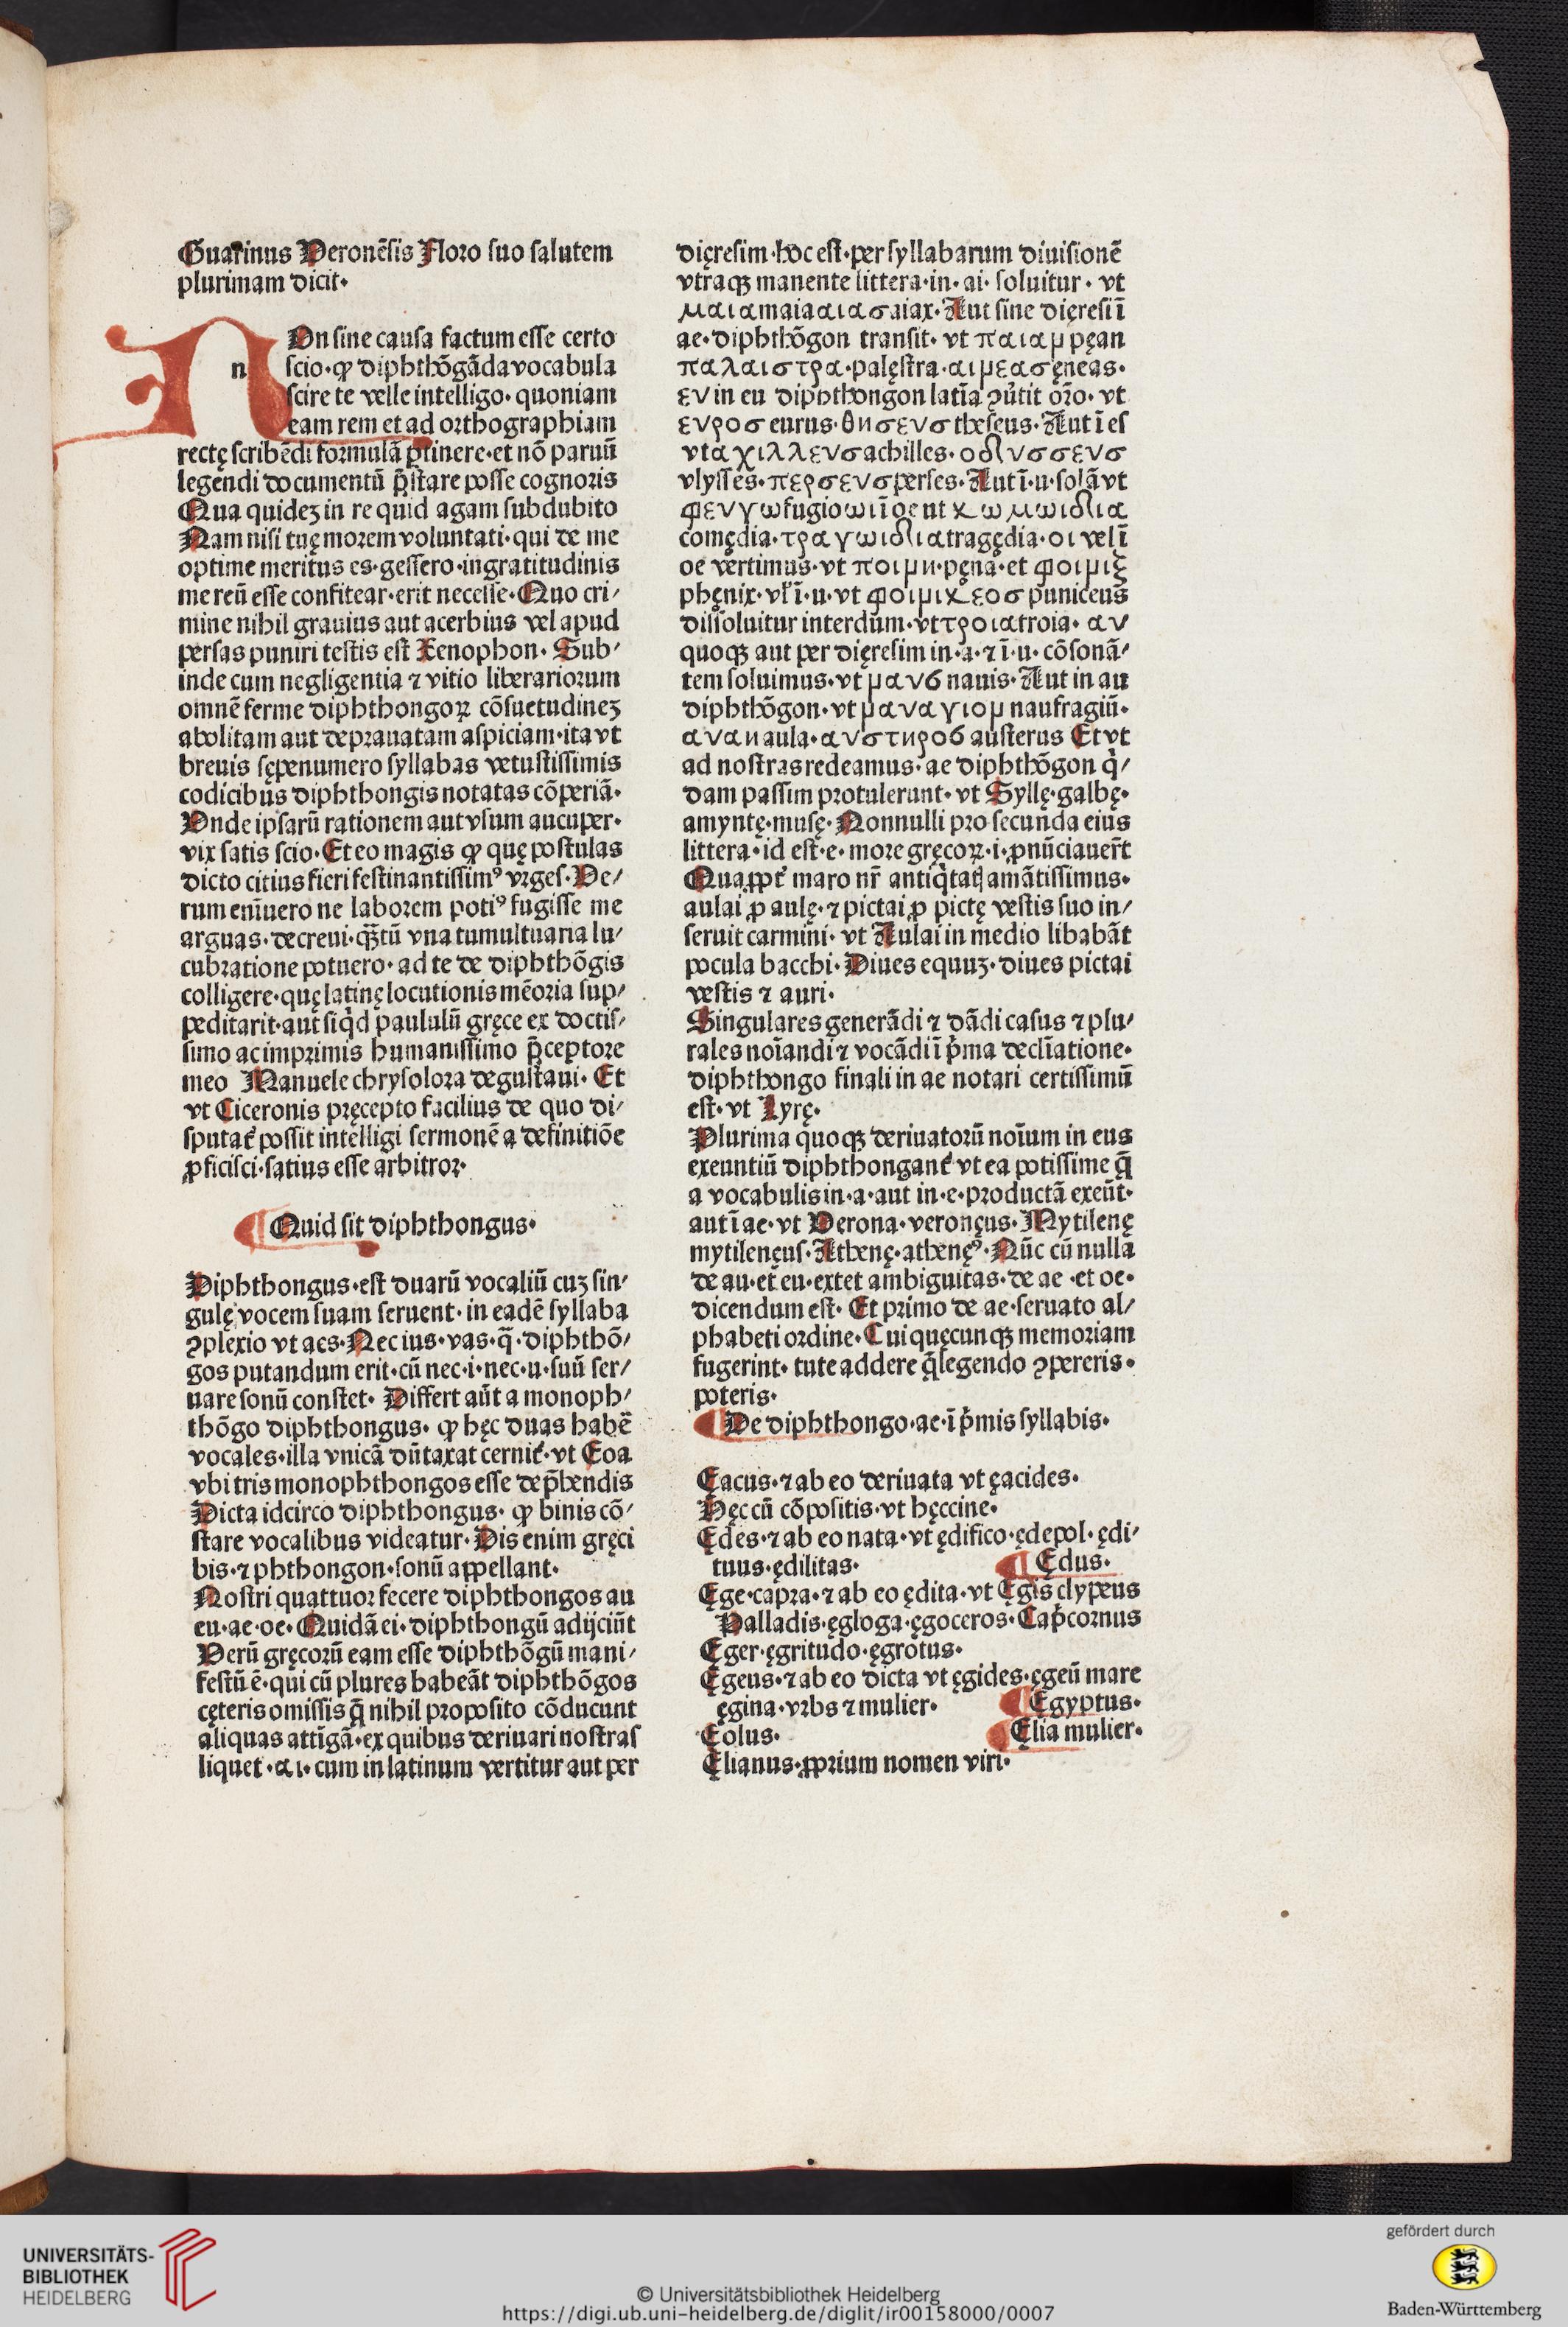 Guarinus Veronēsis Floro suo salutem
plurimam dicit·
n
On sine causa factum esse certo
scio·ꝙ diphthōgāda vocabula
scire te velle intelligo· quoniam
eam rem et ad orthographiam
rectę scribēdi formulā ꝑtinere·et nō paruū
legendi documentū p̄stare posse cognoris
Qua quidez in re quid agam subdubito
Nam nisi tuę morem voluntati· qui de me
optime meritus es·gessero·ingratitudinis
me reū esse confitear·erit necesse·Quo cri/
mine nihil grauius aut acerbius vel apud
persas puniri testis est Xenophon· Sub/
inde cum negligentia ⁊ vitio librariorum
omnē ferme diphthongoꝝ cōsuetudinez
abolitam aut deprauatam aspiciam·ita vt
breuis sępenumero syllabas vetustissimis
codicibus diphthongis notatas cōperiā·
Vnde ipsarū rationem aut vsum aucuper·
vix satis scio·Et eo magis ꝙ quę postulas
dicto citius fieri festinantissimꝰ vrges·Ve/
rum enīuero ne laborem potiꝰ fugisse me
arguas·decreui·qꝫtū vna tumultuaria lu/
cubratione potuero·ad te de diphthōgis
colligere·quę latinę locutionis mēoria sup/
peditarit·aut siqd paululū gręce ex doctis/
simo ac imprimis humanissimo p̄ceptore
meo Manuele chrysolora degustaui· Et
vt Ciceronis pręcepto facilius de quo di/
sputat᷑ possit intelligi sermonē a definitiōe
ꝓficisci·satius esse arbitror·
Quid sit diphthongus·
Diphthongus·est duarū vocaliū cuz sin/
gulę vocem suam seruent·in eadē syllaba
ꝯplexio vt aes·Nec ius·vas·q̄·diphthō/
gos putandum erit·cū nec·i·nec·u·suū ser/
uare sonū constet· Differt aūt a monoph/
thōgo diphthongus· ꝙ hęc duas habē
vocales·illa vnicā dūtaxat cernit᷑·vt Eoa
vbi tris monophthongos esse dep̄hendis
Dicta idcirco diphthongus· ꝙ binis cō/
stare vocalibus videatur·Dis enim gręci
bis·⁊ phthongon·sonū appellant·
Nostri quattuor fecere diphthongos au
eu·ae·oe·Quidā ei·diphthongū adijciūt
Verū gręcorū eam esse diphthōgū mani/
festū ē·qui cū plures habeāt diphthōgos
cęteris omissis q̄ nihil proposito cōducunt
aliquas attīgā·ex quibus deriuari nostras
liquet·αι·cum in latinum vertitur aut per
dięresim·hoc est·per syllabarum diuisionē
vtraqꝫ manente littera·in·ai·soluitur·vt
μαια maia αιασ aiax·Aut sine dięresi ī
ae·diphthōgon transit·vt παιαμ pęan
παλαιστρα·palęstra·αιμεασ ęneas·
ευ in eu diphthongon latīa ꝯu̓tit or̄o·vt
ευροσ eurus·θησευσ theseus·Aut ī es
vt αχιλλευσ achilles·οδυσσευσ
vlysses·περσευσ perses·Aut ī·u·solā vt
φευγω fugio ωι ī oe ut χωμωιδια
comędia·τραγωιδια tragędia·οι vel ī
oe vertimus·vt ποιμη·pęna·et φοιμιξ
phęnix·vl̓ ī·u·vt φοιμιχεοσ puniceus
dissoluitur interdum·vt τροια troia· αυ
quoqꝫ aut per dięresim in·a·⁊ ī·u·cōsonā/
tem soluimus·vt μαυσ nauis·Aut in au
diphthōgon·vt μαυαγιομ naufragiū·
αυλη aula·αυστηροσ austerus Et vt
ad nostras redeamus·ae diphthōgon q̓/
dam passim protulerunt·vt Syllę·galbę·
amyntę·musę·Nonnulli pro secunda eius
littera·id est·e·more gręcoꝝ·i·ꝓnūciauer̄t
Quaꝓpt᷑ maro nr̄ antiq̓tatꝭ amātissimus·
aulai ꝓ aulę·⁊ pictai ꝓ pictę vestis suo in/
seruit carmini·vt Aulai in medio libabāt
pocula bacchi·Diues equuz·diues pictai
vestis ⁊ auri·
Singulares generādi ⁊ dādi casus ⁊ plu/
rales noīandi ⁊ vocādi ī p̓ma declīatione·
diphthongo finali in ae notari certissimū
est·vt Lyrę·
Plurima quoqꝫ deriuatorū noīum in eus
exeuntiū diphthongant᷑ vt ea potissime q̄
a vocabulis in·a·aut in·e·productā exeūt·
aut ī ae·vt Verona·veronęus·Mytilenę
mytilenęus·Athenę·athenęꝰ·Nūc cū nulla
de au·et eu·extet ambiguitas·de ae·et oe·
dicendum est· Et primo de ae·seruato al/
phabeti ordine·Cui quęcunqꝫ memoriam
fugerint·tute addere q̄ legendo ꝯpereris·
poteris·
De diphthongo·ae·ī p̓mis syllabis·
Ęacus·⁊ ab eo deriuata vt ęacides·
Hęc cū cōpositis·vt hęccine·
Ędes·⁊ ab eo nata·vt ędifico·ędepol·ędi/
tuus·ędilitas·
Ędus·
Ęge·capra·⁊ ab eo ędita·vt Ęgis clypeus
Palladis·ęgloga·ęgoceros·Cap̓cornus
Ęger·ęgritudo·ęgrotus·
Ęgeus·⁊ ab eo dicta vt ęgides·ęgeū mare
ęgina·vrbs ⁊ mulier·
Ęgyptus·
Ęolus·
Ęlia mulier·
Ęlianus·ꝓprium nomen viri·
UNIVERSITÄTS-
BIBLIOTHEK
HEIDELBERG
© Universitätsbibliothek Heidelberg
https://digi.ub.uni-heidelberg.de/diglit/ir00158000/0007
gefördert durch
Baden-Württemberg